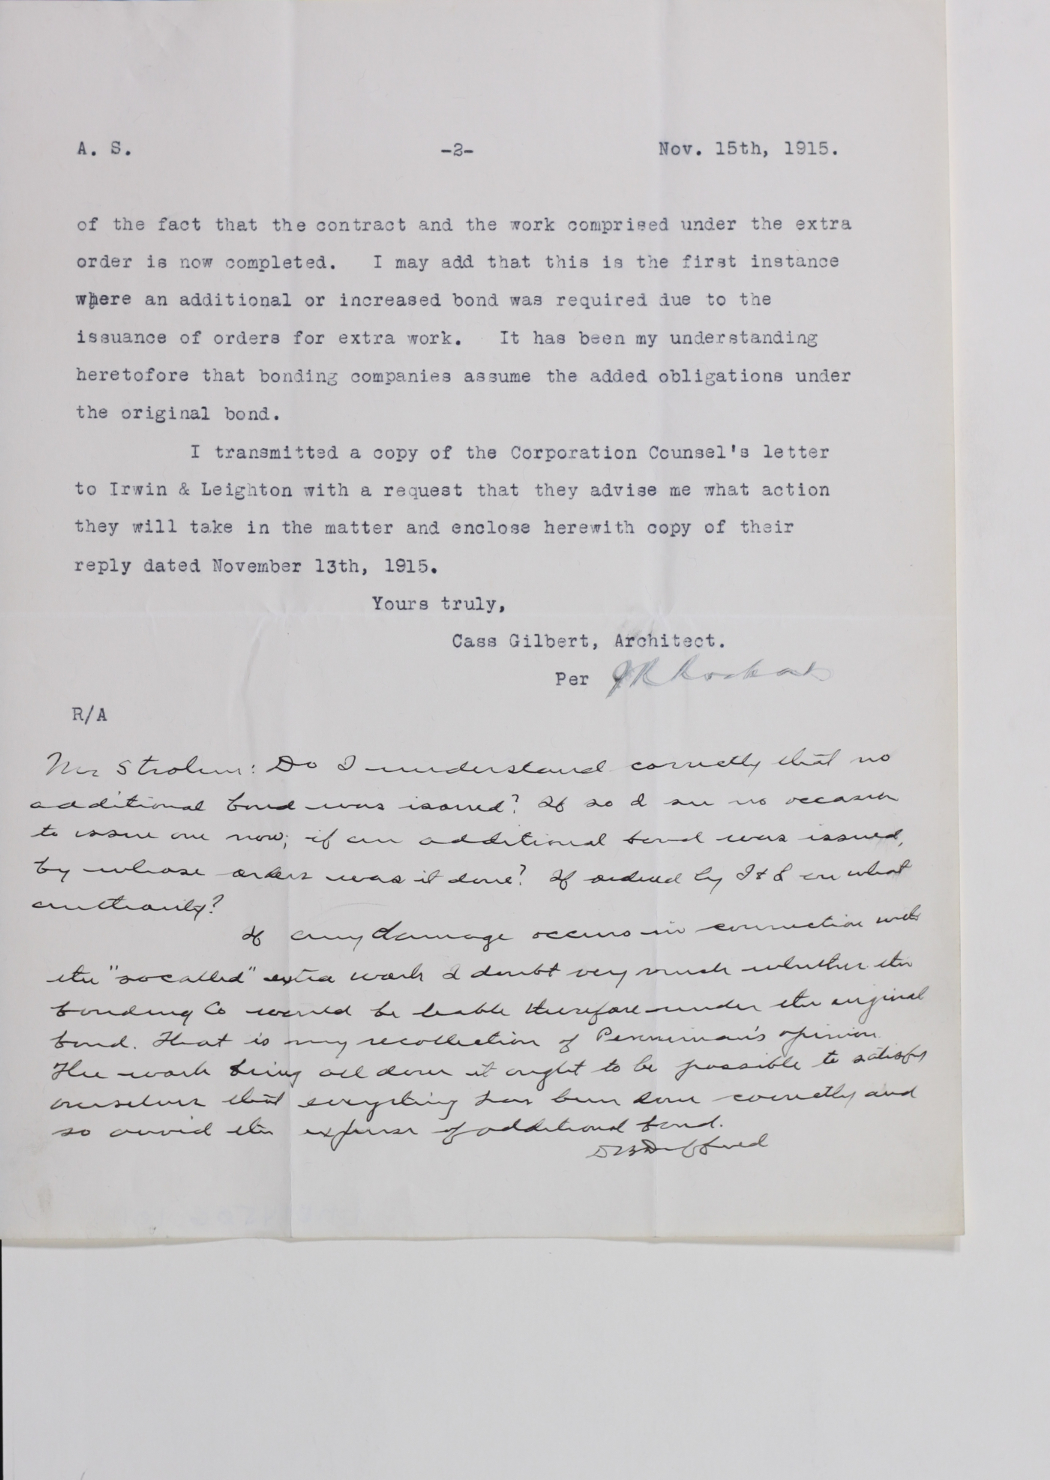 A. S. -2- Nov. 15th, 1915.
of the fact that the contract and the work comprised under the extra
order is now completed. I may add that this is the first instance
where an additional or increased bond was required due to the
issuance of orders for extra work. It has been my understanding
heretofore that bonding companies assume the added obligations under
the original bond.
I transmitted a copy of the Corporation Counsel's letter
to Irwin & Leighton with a request that they advise me what action
they will take in the matter and enclose herewith copy of their
reply dated November 13th, 1915.
Yours truly,
Cass Gilbert, Architect.
Per J R Rockart
R/A
Mr Strohm: Do I understand correctly that no
additional bond was issued? If so I see no occasion
to issue one now; if an additional bond was issued,
by whose orders was it done? If ordered by I & L on what
authority?
If any damage occurs in connection with
the "so called" extra work I doubt very much whether the
bonding Co would be liable therefore under the original
bond. That is my recollection of Penniman's opinion
The work being all done it ought to be possible to satisfy
ourselves that everything has been done correctly and
so avoid the expense of additional bond.